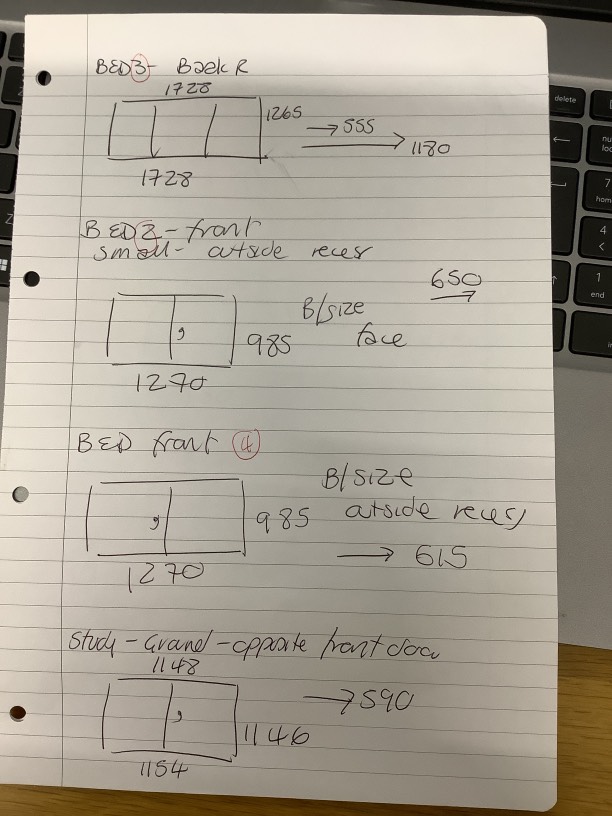 BED 3 - Back R
1728
1265
→ 555
→ 1180
1728
BED 2 - front
small - outside recess
650
B/size
face
985
1270
BED front 4
B/size
outside recess
985
→ 615
1270
Study - Grand - opposite front door
1148
→ 590
1146
1154
delete
7
home
4
1
end
Z